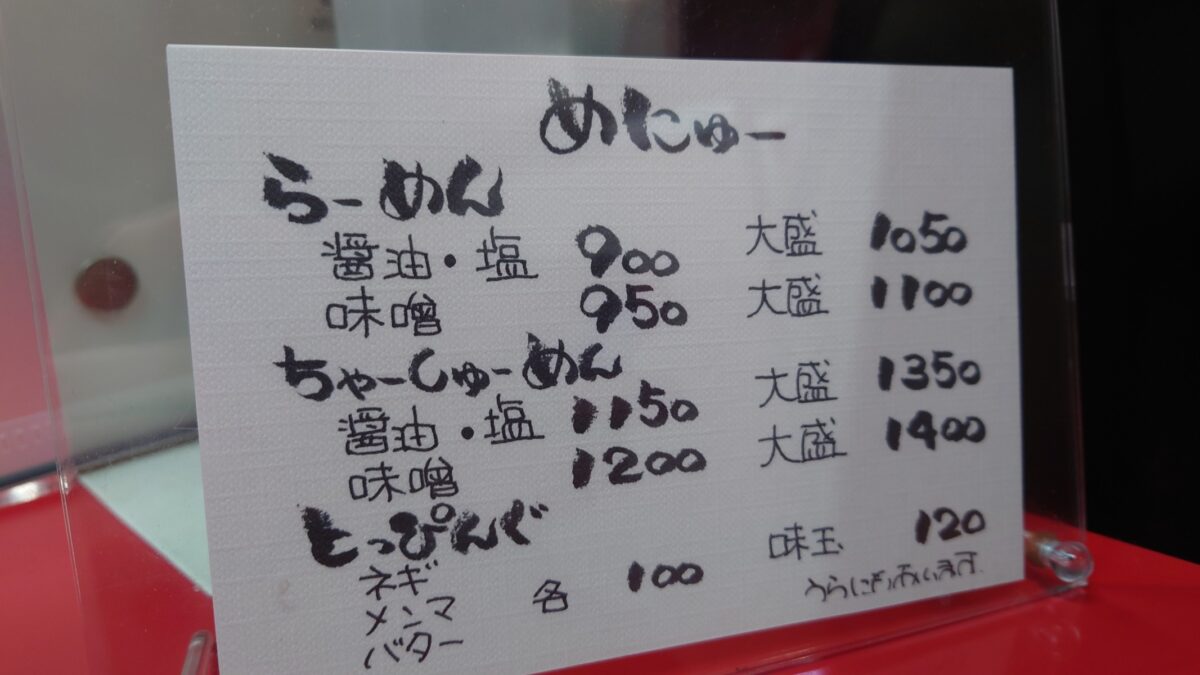 めにゅー
らーめん
醤油・塩 900 大盛 1050
味噌 950 大盛 1100
ちゃーしゅーめん
醤油・塩 1150 大盛 1350
味噌 1200 大盛 1400
とっぴんぐ
ネギ
メンマ 各 100 味玉 120
バター
うらにもあります